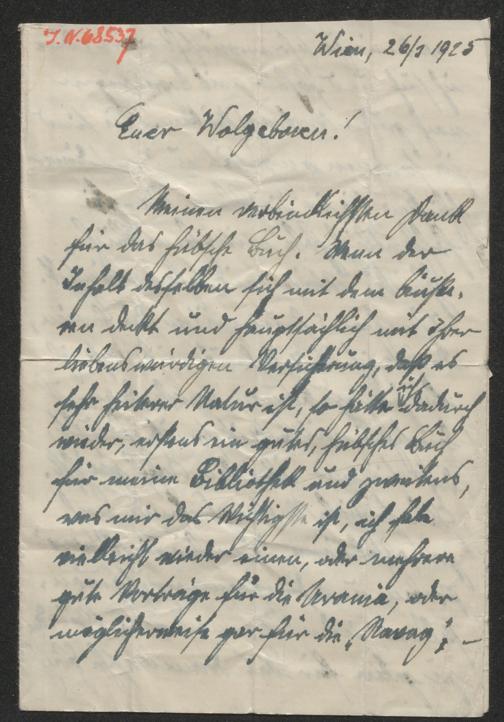 J. N. 68537
Wien, 26/3 1925
Euer Wolgeboren!
Meinen verbindlichsten Dank
für das hübsche Buch. Wenn der
Inhalt desselben sich mit dem Äuße-
ren deckt und hauptsächlich mit Ihrer
liebenswürdigen Versicherung, daß es
sehr heiterer Natur ist, so hätte ich dadurch
wieder, erstens ein gutes, hübsches Buch
für meine Bibliothek und zweitens,
was mir das Wichtigste ist, ich habe
vielleicht wieder einen, oder mehrere
gute Vorträge für die Urania, oder
möglicherweise gar für die „Ravag“, –